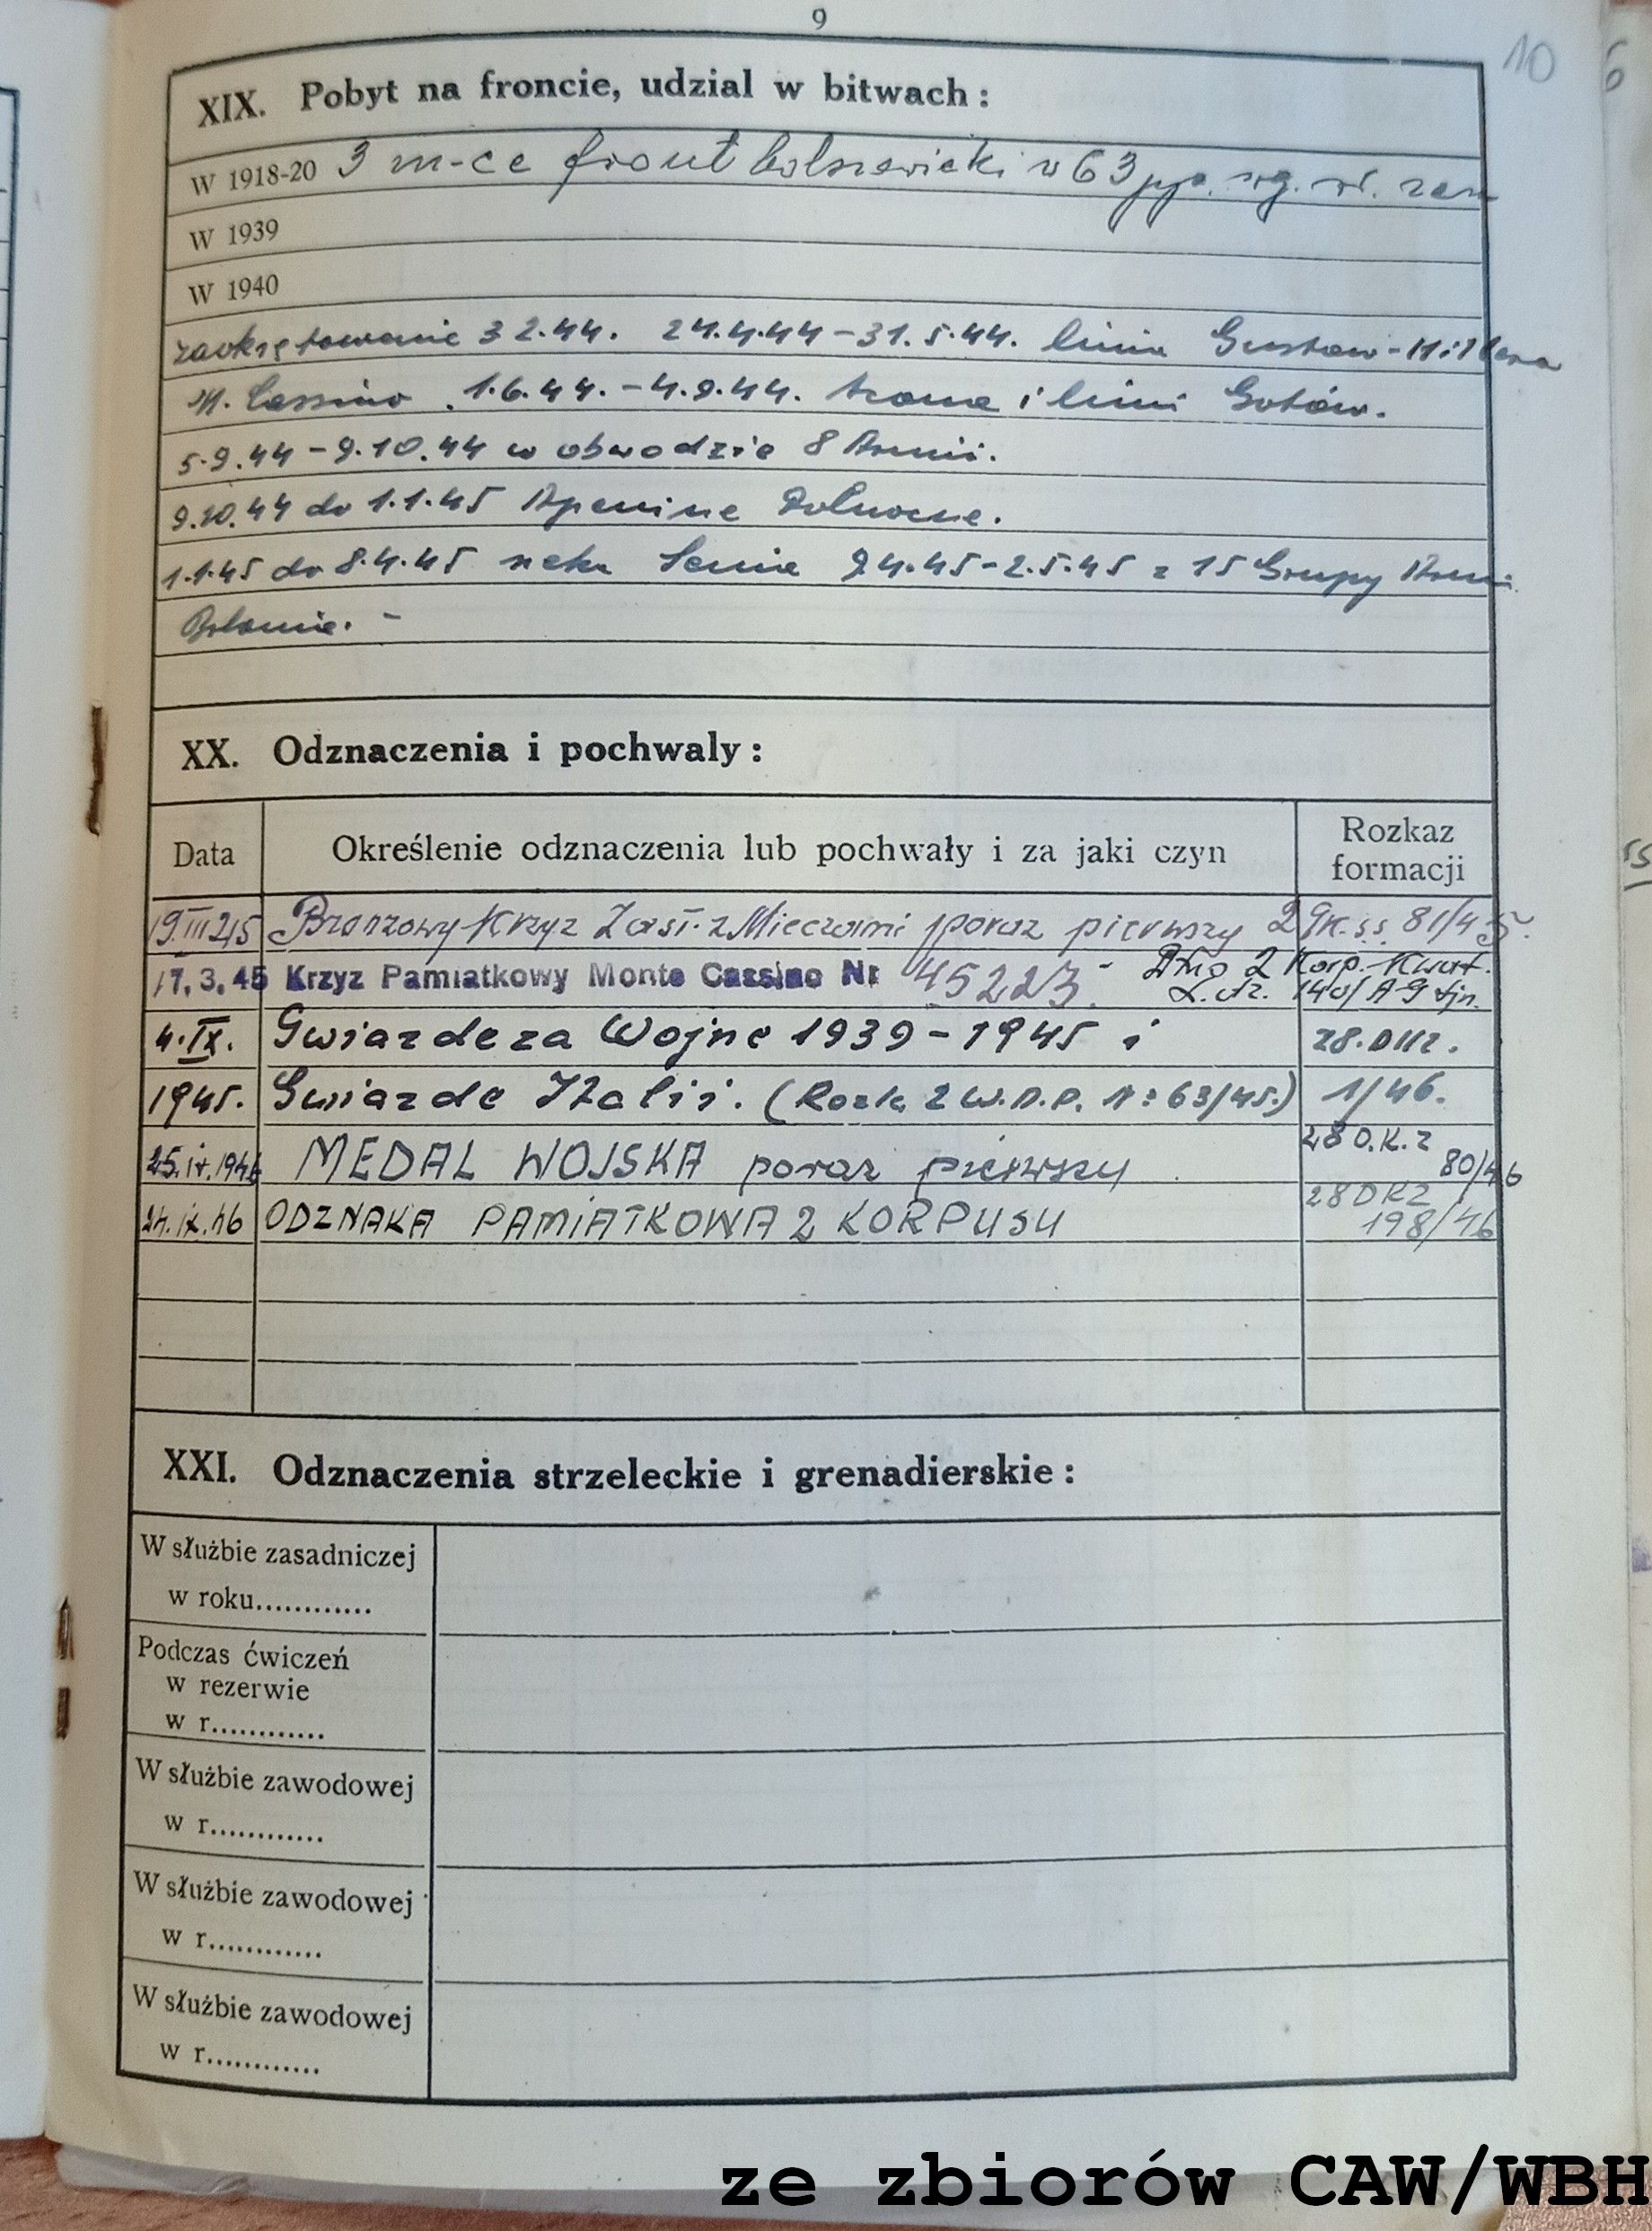 9
10
XIX. Pobyt na froncie, udzial w bitwach :
W 1918-20 3 m-ce front bolszewicki w 63 pp. wg. wł. zezn
W 1939
W 1940
zaokrętowanie 3 2.44. 24.4.44 - 31.5.44. linia Gustaw - Hitlera
M. Cassino . 1.6.44. - 4.9.44. Ancona i linii Gotów.
5.9.44 - 9.10.44 w obwodzie 8 Armii.
9.10.44 do 1.1.45 Apenine Polnocne.
1.1.45 do 8.4.45 rzeka Senio 9.4.45 - 2.5.45 z 15 Grupy Armi
Bolonia. -
XX. Odznaczenia i pochwaly :
Data Określenie odznaczenia lub pochwały i za jaki czyn Rozkaz formacji
19.III 45 Bronzowy Krzyz Zasł. z Mieczami poraz pierwszy 2 Gr. 81/45.
17.3.45 Krzyz Pamiatkowy Monte Cassino Nr 45223. - 2 Korp. Kwat.
L.dz. 140/AG tjn.
4.IX. Gwiazde za Wojne 1939 - 1945 i 28.DRZ.
1945. Gwiazde Italii. (Rozk. 2 W.D.P. Nr 63/45.) 1/46.
25.IV.1946 MEDAL WOJSKA poraz pierwszy 28 D.R.Z 80/46
24.IX.46 ODZNAKA PAMIATKOWA 2 KORPUSU 28 DRZ 198/46
XXI. Odznaczenia strzeleckie i grenadierskie :
W służbie zasadniczej
w roku............
Podczas ćwiczeń
w rezerwie
w r............
W służbie zawodowej
w r............
W służbie zawodowej
w r............
W służbie zawodowej
w r............
ze zbiorów CAW/WBH